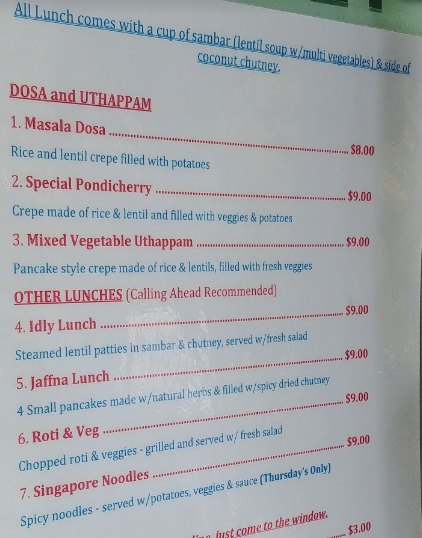 All Lunch comes with a cup of sambar (lentil soup w/multi vegetables) & side of
coconut chutney.
DOSA and UTHAPPAM
1. Masala Dosa ........ $8.00
Rice and lentil crepe filled with potatoes
2. Special Pondicherry ........ $9.00
Crepe made of rice & lentil and filled with veggies & potatoes
3. Mixed Vegetable Uthappam ........ $9.00
Pancake style crepe made of rice & lentils, filled with fresh veggies
OTHER LUNCHES (Calling Ahead Recommended)
4. Idly Lunch ........ $9.00
Steamed lentil patties in sambar & chutney, served w/fresh salad
5. Jaffna Lunch ........ $9.00
4 Small pancakes made w/natural herbs & filled w/spicy dried chutney
6. Roti & Veg ........ $9.00
Chopped roti & veggies - grilled and served w/ fresh salad
7. Singapore Noodles ........ $9.00
Spicy noodles - served w/potatoes, veggies & sauce (Thursday's Only)
just come to the window.
$3.00